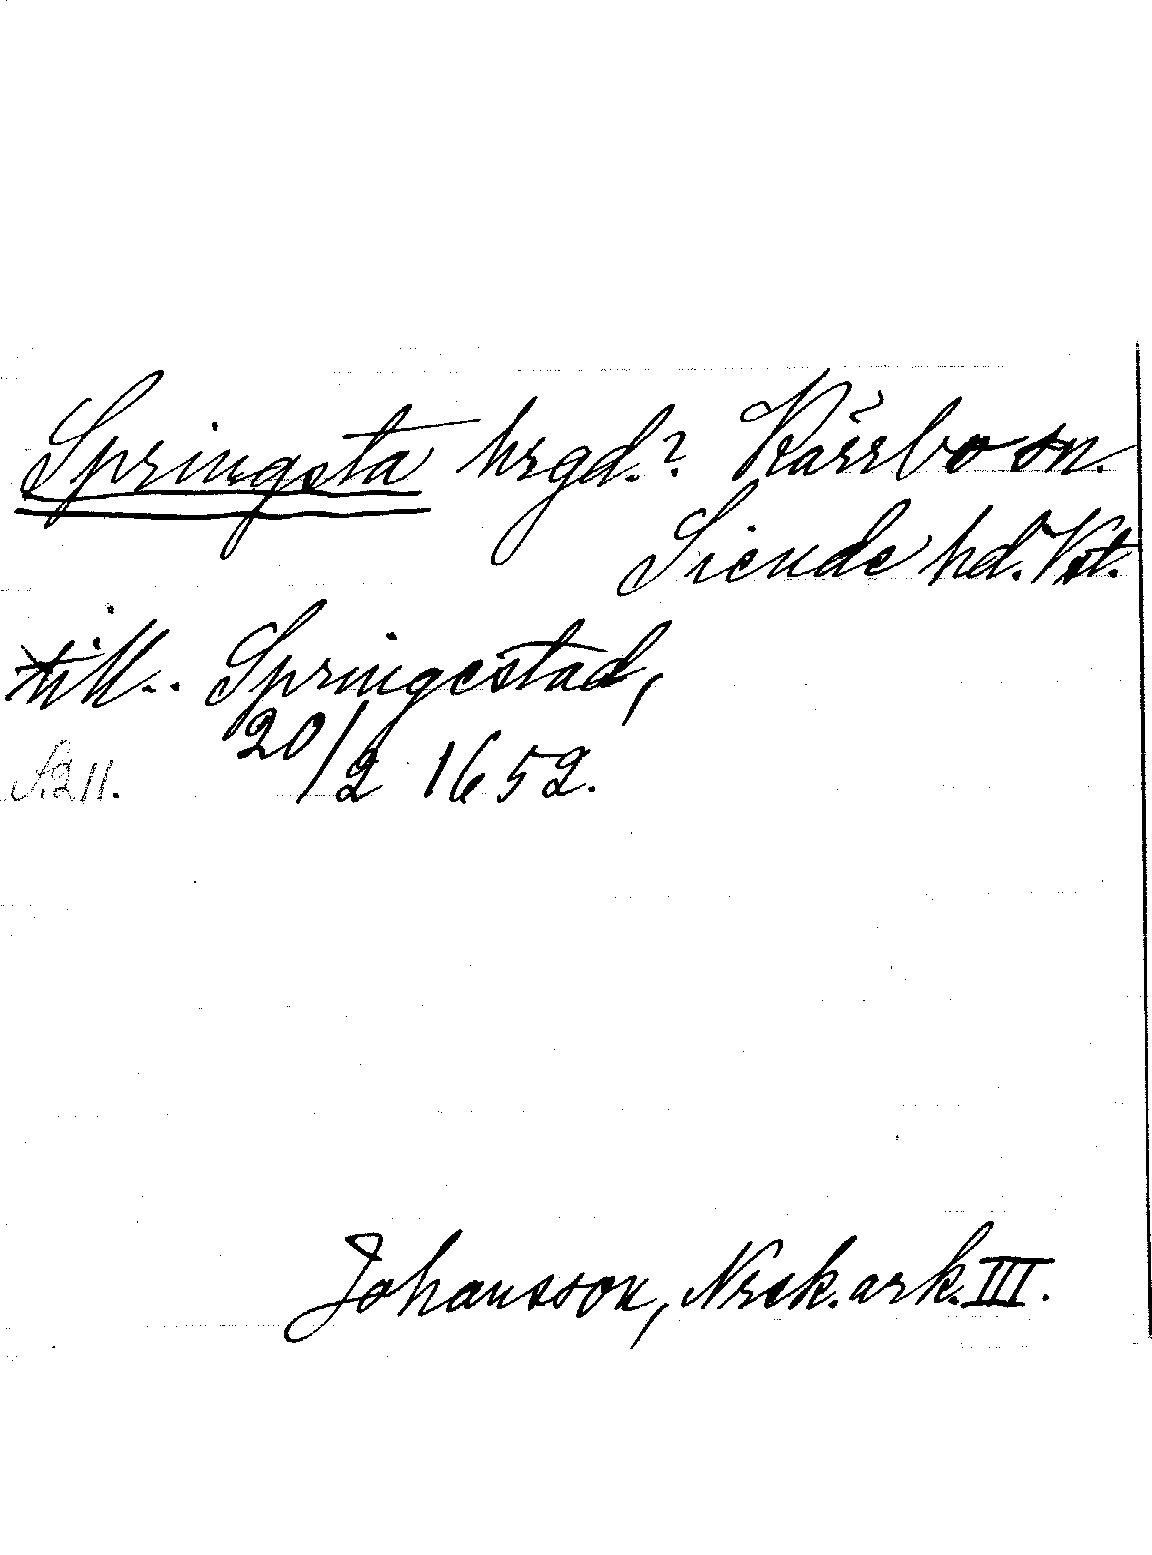 Springsta hrgd.? Kärrbo sn.
Siende hd. Vst.
till.. Springestad,
20/2 1652.
S. 211.
Johansson, Nrsk. ark. III.